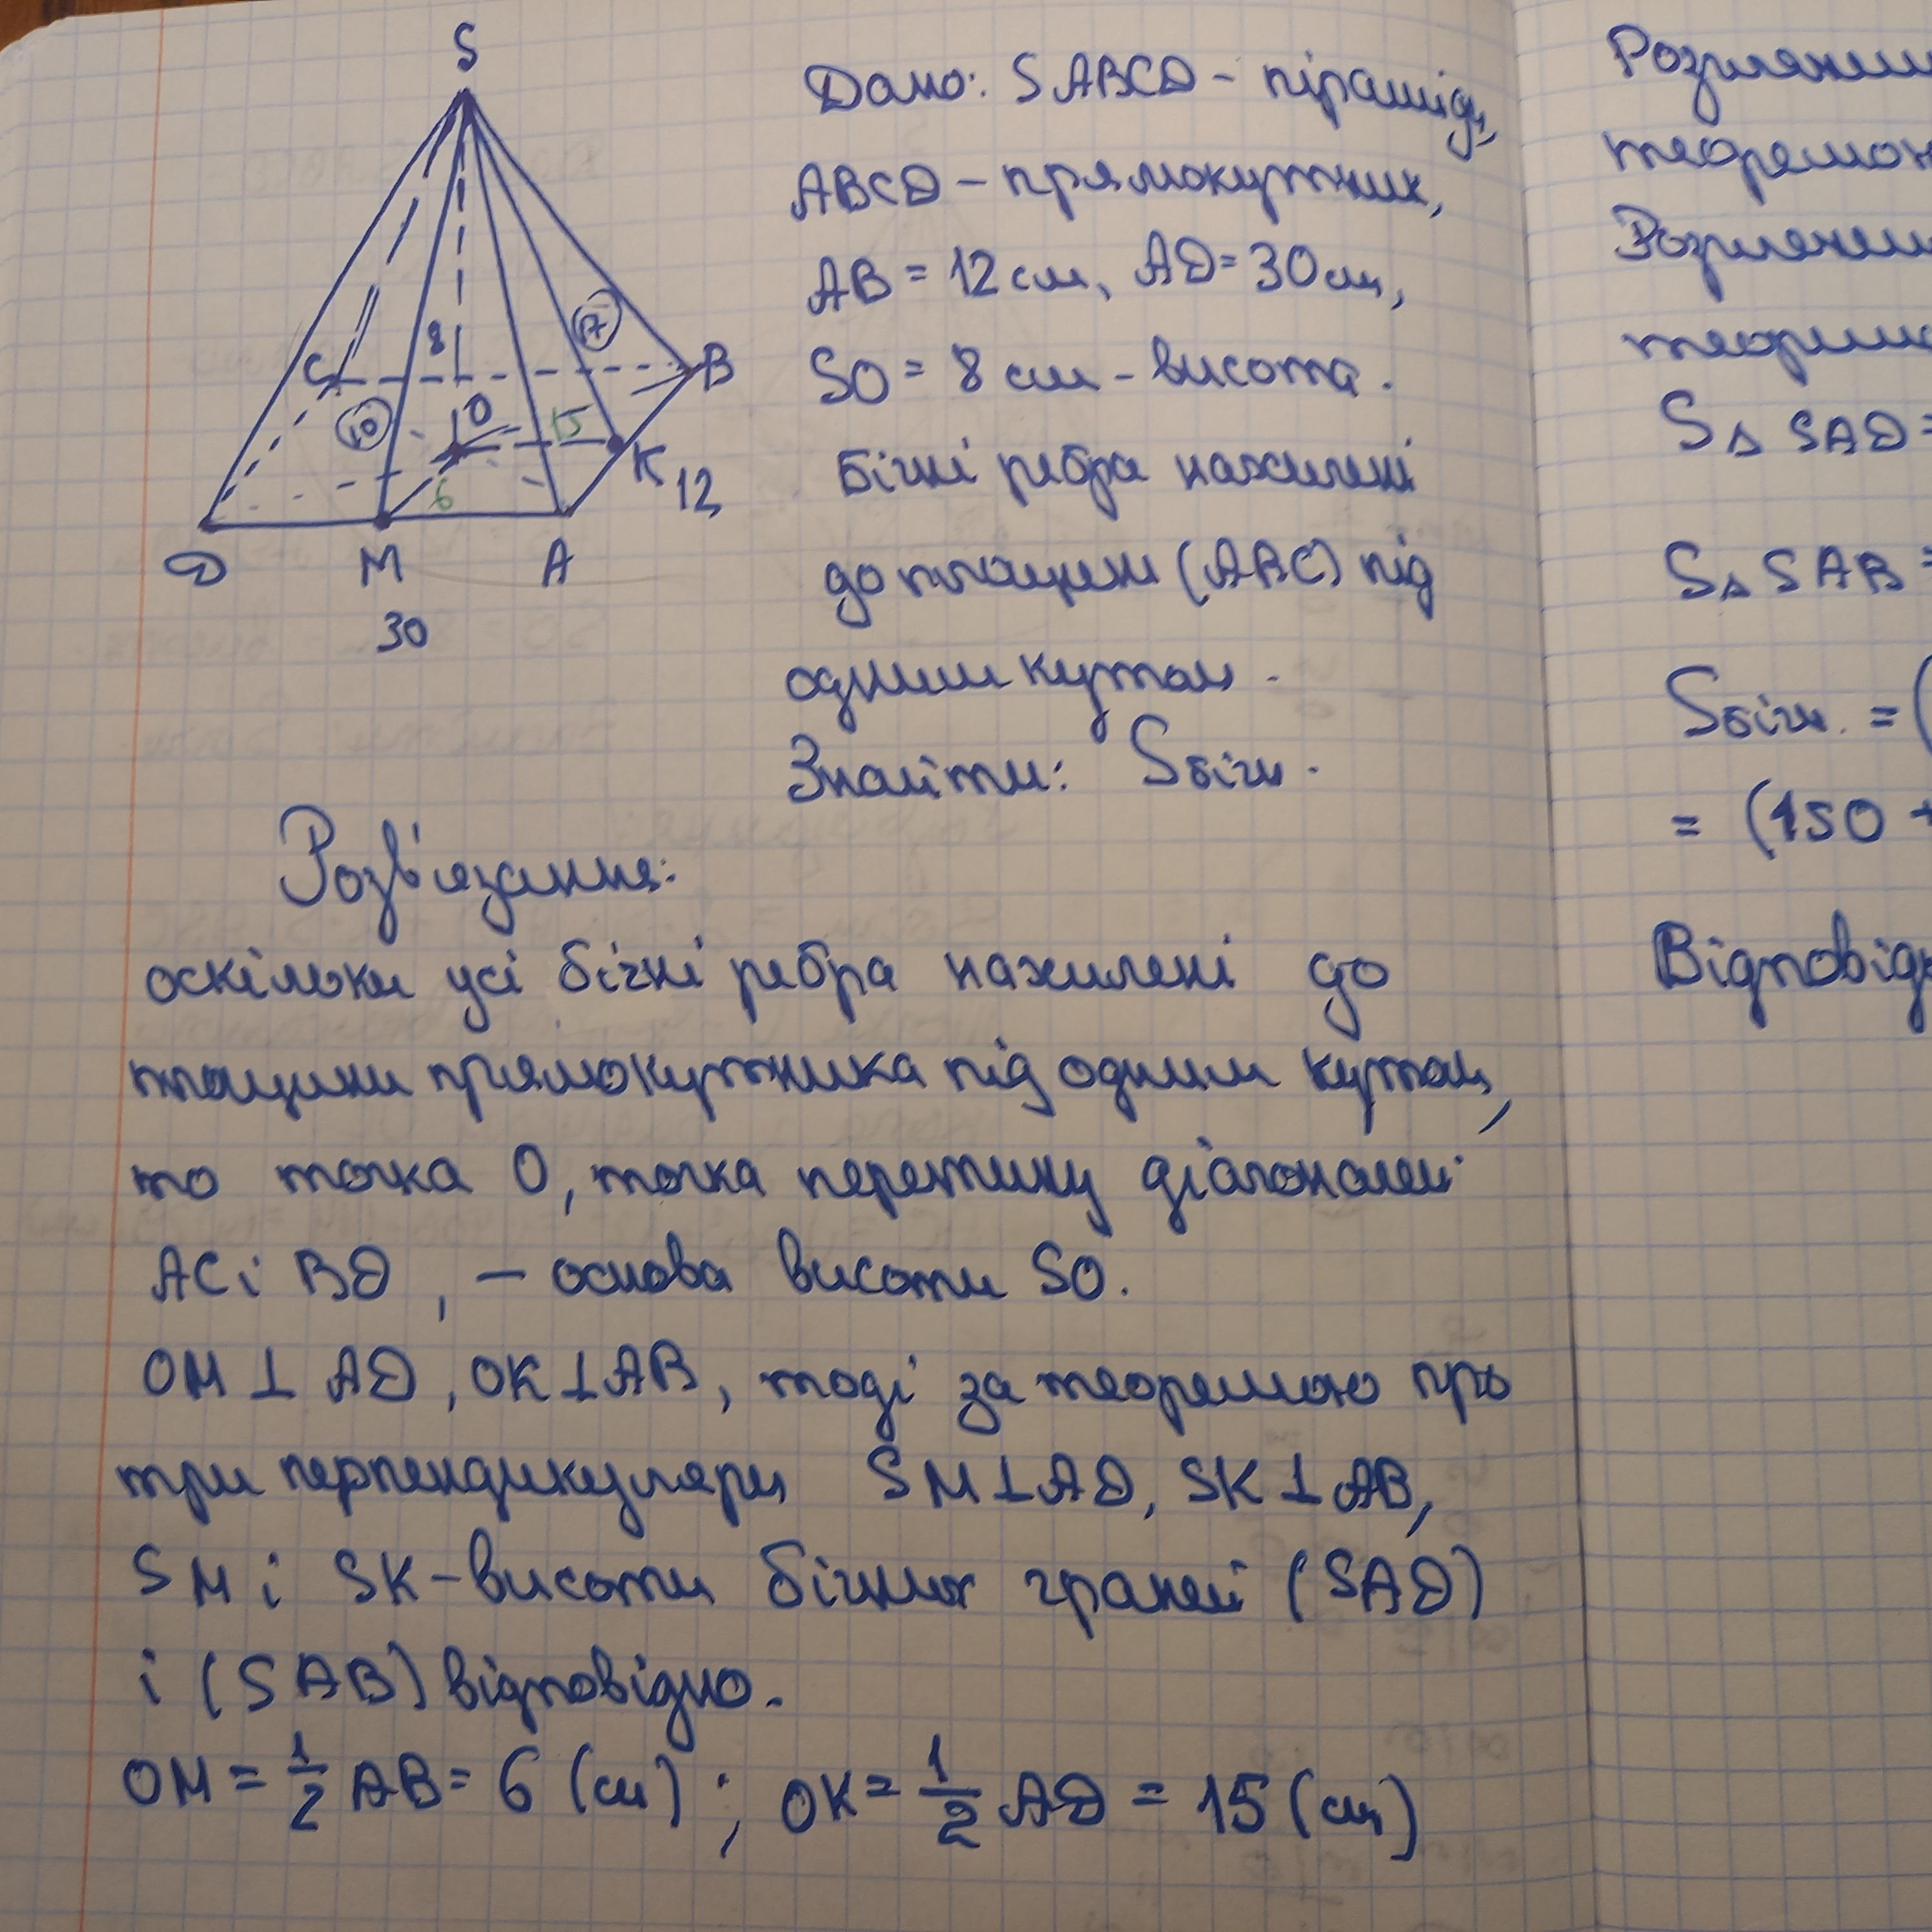 S
Дано: SABCD – піраміда,
ABCD – прямокутник,
AB = 12 см, AD = 30 см,
SO = 8 см – висота.
Бічні ребра нахилені
до площини (ABC) під
одним кутом.
Знайти: Sбічн.
17
8
C
B
10
O
15
K
12
6
D
M
A
30
Розв'язання:
оскільки усі бічні ребра нахилені до
площини прямокутника під одним кутом,
то точка O, точка перетину діагоналей
AC і BD, – основа висоти SO.
OM ⊥ AD, OK ⊥ AB, тоді за теоремою про
три перпендикуляри SM ⊥ AD, SK ⊥ AB,
SM і SK – висоти бічних граней (SAD)
і (SAB) відповідно.
OM = 1/2 AB = 6 (см); OK = 1/2 AD = 15 (см)
S△ SAD =
S△ SAB =
Sбічн. = (
= (150 +